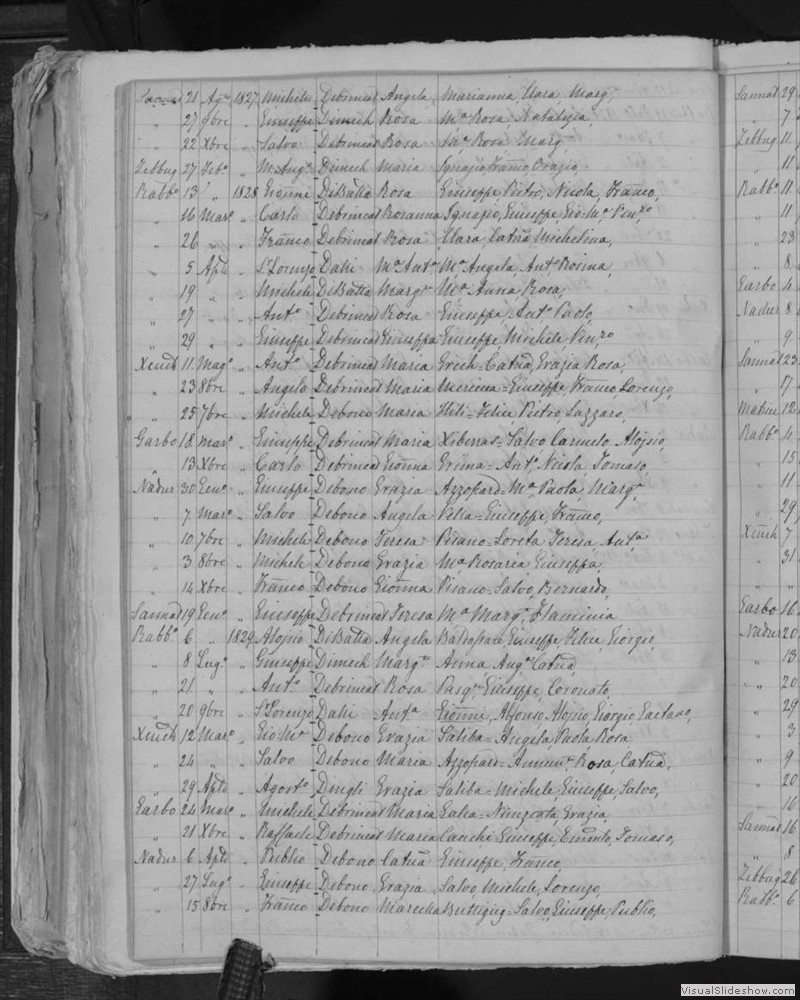 Sannat 21 Ag.o 1827 Michele Debrincat Angela Marianna, Clara Marg.ta
" 27 9bre " Giuseppe Dimech Rosa M.a Rosa, Natalizia,
" 22 Xbre " Salvo Debrincat Rosa M.a Rosa Marg.ta
Zebbug 27 Feb.o " M. Ang.o Dimech Maria Ignazio, Franco, Orazio,
Rabb.o 13 " " 1828 Gionni DeBattia Rosa Giuseppe, Pietro, Nicola, Franco,
" 16 Mar.o " Carlo Debrincat Rosanna Ignazio, Giuseppe, Gio. M.a Vin.zo
" 26 " " Franco Debrincat Rosa Clara, Catna Michelina,
" 5 Aple " S.r Lorenzo Dahi M.a Ant.a M.a Angela, Ant.a Rosina,
" 19 " " Michele DeBattia Marg.ta M.a Anna, Rosa,
" 27 " " Ant.o Debrincat Rosa Giuseppe, Ant.o Paolo,
" 29 " " Giuseppe Debrincat Giuseppa Giuseppe Michele Vin.zo
Xeuch 11 Mag.o " Ant.o Debrincat Maria Grech - Catna, Grazia Rosa,
" 23 8bre " Angelo Debrincat Maria Mercieca - Giuseppe, Franco, Lorenzo,
" 25 7bre " Michele Debono Maria Hili - Felice Pietro, Lazzaro,
Garbo 18 Mar.o " Giuseppe Debrincat Maria Xiberras - Salvo Carmelo Alojsio,
" 13 Xbre " Carlo Debrincat Gionna Grima - Ant.o Nicola, Tomaso,
Nadur 30 Gen.o " Giuseppe Debono Grazia Azzopard - M.a Paola, Marg.ta
" 7 Mar.o " Salvo Debono Angela Vella - Giuseppe, Franco,
" 10 7bre " Michele Debono Teresa Pisano - Loreta Teresa, Ant.a
" 3 8bre " Michele Debono Grazia M.a Rosaria Giuseppa,
" 14 Xbre " Franco Debono Gionna Pisano - Salvo, Bernardo,
Sannat 19 Gen.o " Giuseppe Debrincat Teresa M.a Marg.ta Flaminia
Rabb.o 6 " 1829 Alojsio DeBattia Angela Baldassare, Giuseppe, Felice, Giorgio,
" 8 Lug.o " Giuseppe Dimech Marg.ta Anna Ang.a Catna,
" 21 " " Ant.o Debrincat Rosa Pasq.le Giuseppe, Coronato,
" 20 9bre " S.r Lorenzo Dahi Ant.a Gionni, Alfonso, Alojsio, Giorgio, Gaetano,
Xeuch 12 Mar.o " Gio M.a Debono Grazia Saliba - Angela, Paola, Rosa
" 24 " " Salvo Debono Maria Azzopard - Annun.ta Rosa, Catna,
" 29 Aple " Agost.o Dingli Grazia Saliba - Michele, Giuseppe, Salvo,
Garbo 24 Mar.o " Michele Debrincat Maria Galea - Nunziata, Grazia,
" 21 Xbre " Raffaele Debrincat Maria Cauchi - Giuseppe, Tomaso,
Nadur 6 Aple " Publio Debono Catna Giuseppe, Franco,
" 27 Lug.o " Giuseppe Debono Grazia Salvo, Michele, Lorenzo,
" 15 8bre " Franco Debono Marcella Buttigieg - Salvo, Giuseppe, Publio,
Sannat 29
" 7
Zebbug 11
" 11
Rabb.o 11
" 11
" 23
" 8
Garbo 4
Nadur 8
" 9
Sannat 23
" 17
12
Rabb.o 4
" 15
" 11
" 29
Xeuch 7
" 31
Garbo 16
Nadur 20
" 13
" 20
" 29
" 3
" 9
" 20
" 16
Sannat 16
" 8
Zebbug 26
Rabb.o 6
VisualSlideshow.com